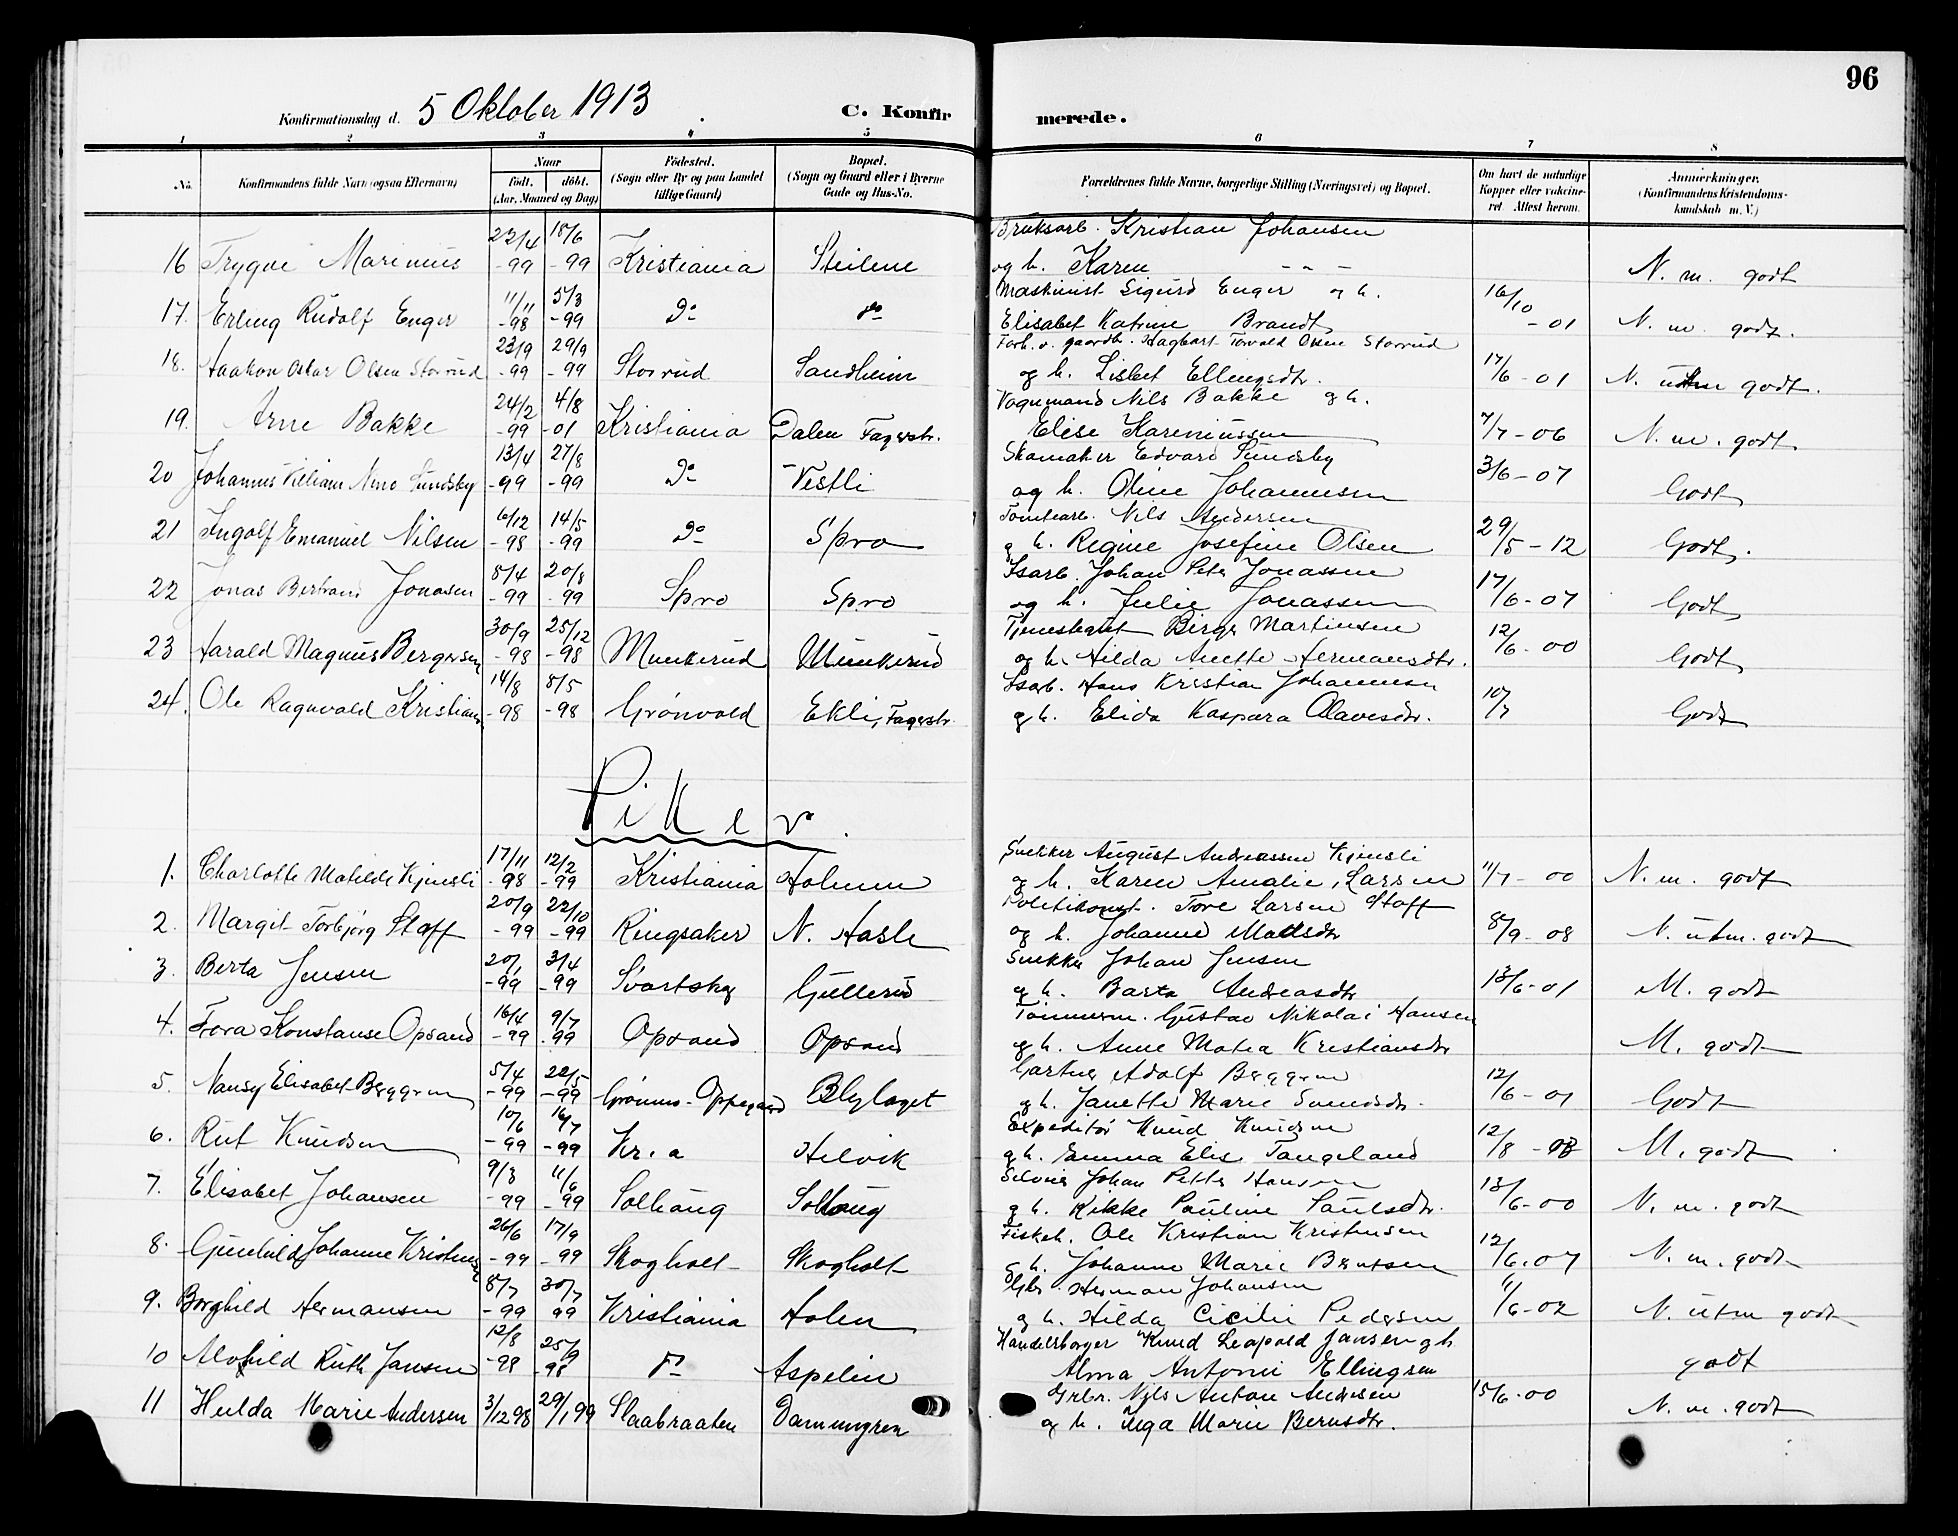 96
Konfirmationsdag d. 5 Oktober 1913 C. Konfirmerede.
1 2 3 4 5 6 7 8
No. Konfirmandens fulde Navn (ogsaa Efternavn) Naar födt. döbt. (Aar, Maaned og Dag) Födested. (Sogn eller By og paa Landet tillige Gaard) Bopæl. (Sogn og Gaard eller i Byerne Gade og Hus-No. Forældrenes fulde Navne, borgerlige Stilling (Næringsvei) og Bopæl. Om havt de naturlige Kopper eller vakcineret. Attest herom. Anmerkninger. (Konfirmandens Kristendomskundskab m. V.)
22/4 18/6 Bruksarb. Kristian Johansen
16 Trygve Marinius -99 -99 Kristiania Steilene og h. Karen - - - N. m. godt
11/11 5/3 Maskinist Sigurd Enger og h.
17. Erling Rudolf Enger -98 -99 Do do Elisabet Katrine Brandt 16/10 -01 N. m. godt.
23/9 29/9 Forh. v. gaardb. Hagbart Torvald Olsen Storrud
18. Haakon Oskar Olsen Storrud -99 -99 Storrud Sandheim og h. Lisbet Ellingsdtr. 17/6 -01 N. utm godt.
24/2 4/8 Vognmand Nils Bakke og h.
19. Arne Bakke -99 -01 Kristiania Dalen Fagerstr. Elise Kareniussen 7/7 -06 N. m. godt
13/4 27/8 Skomaker Edvard Sundsby
20 Johannes Villiam Sundsby -99 -99 Do Vestli og h. Oline Johannesen 3/6 -07 Godt
6/12 14/5 Tomtearb. Nils Andersen
21 Ingolf Emanuel Nilsen -98 -99 Do Spro og h. Regine Josefine Olsen 29/5 -12 Godt.
8/4 20/8 Isarb. Johan Peter Jonassen
22 Jonas Bertrand Jonasen -99 -99 Spro Spro og h. Julie Jonassen 17/6 -07 Godt
30/9 25/12 Tjenestegut Birger Martinsen
23 Harald Magnus Bergersen -98 -98 Munkerud Munkerud og h. Hilda Anette Hermansdtr. 12/6 -00 Godt
14/8 8/5 Isarb. Hans Kristian Johannesen
24. Ole Ragnvald Kristians -98 -98 Grönvold Ekli, Fagerstr. og h. Elida Kaspara Olavesdtr. 10/7 Godt
Piker.
17/11 12/2 Snekker August Andreassen Kjensli
1. Charlotte Matilde Kjensli -98 -99 Kristiania Holmen og h. Karen Amalie Larsen 11/7 -00 N. m. godt
20/9 22/10 Politikonst. Tore Larsen Staff
2. Margit Torbjørg Staff -99 -99 Ringsaker N. Hasle og h. Johanne Madsdtr 8/9 -08 N. utm. godt
20/1 3/4 Snekker Johan Jensen
3. Berta Jensen -99 -99 Svartskog Gullerud og h. Berta Andreasdtr 13/6 -01 M. godt
16/4 9/7 Tömmerm. Gustav Nikolai Hansen
4. Tora Konstanse Opsand -99 -99 Opsand Opsand og h. Anne Matea Kristiansdtr M. godt
5/4 22/5 Gartner Adolf Berggren
5. Nansy Elisabet Berggren -99 -99 Grönmo-Oppegaard Blylaget og h. Janette Marie Svendsdtr. 12/6 -01 Godt
10/6 16/7 Expeditör Knud Knudsen
6. Rut Knudsen -99 -99 Kr.a Helvik og h. Emma Elis Tangeland 12/8 M. godt
9/3 11/6 Johan Petter Hansen
7. Elisabet Johansen -99 -99 Solhaug Solhaug og h. Rikke Pauline Paulsdtr. 13/6 -00 N. m. godt
26/6 17/9 Fiskeh. Ole Kristian Kristensen
8. Gunhild Johanne Kristensen -99 -99 Skogholt Skogholt og h. Johanne Marie Berntsen 12/6 -07 N. m. godt
8/7 30/7 Herman Johansen
9. Borghild Hermansen -99 99 Kristiania Holen og h. Hilda Cicilie Pedersen 11/6 -02 N. utm godt
12/8 25/9 Handelsborger Knud Leopold Jansen og h
10 Alvhild Ruth Jansen -98 -98 Do Aspelin Alma Antonie Ellingsen godt
Grbr. Nils Anton Andresen
11 Hulda Marie Andersen 3/12 98 29/1 99 Slaabraaten Dammengren og h. Inga Marie Berntsdtr. 15/6 -00 N. m. godt